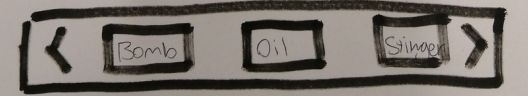 Bomb Oil Stinger